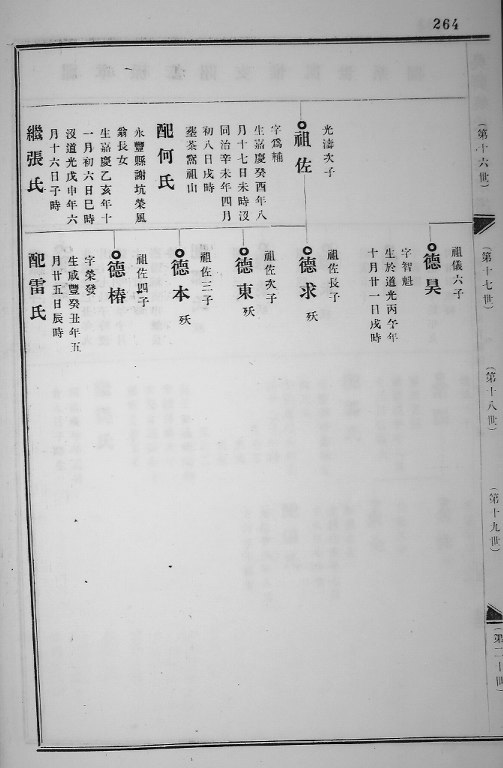 264
(第十六世)
(第十七世)
(第十八世)
(第十九世)
光濤次子
祖佐
字為補
生嘉慶癸酉年八
月十七日未時沒
同治辛未年四月
初八日戌時
塟茶窩祖山
配何氏
永豐縣謝坑榮風
翁長女
生嘉慶乙亥年十
一月初六日巳時
沒道光戊申年六
月十六日子時
繼張氏
祖儀六子
德昊
字智魁
生於道光丙午年
十月廿一日戌時
祖佐長子
德求 殀
祖佐次子
德東 殀
祖佐三子
德本 殀
祖佐四子
德椿
字榮發
生咸豐癸丑年五
月廿五日辰時
配雷氏